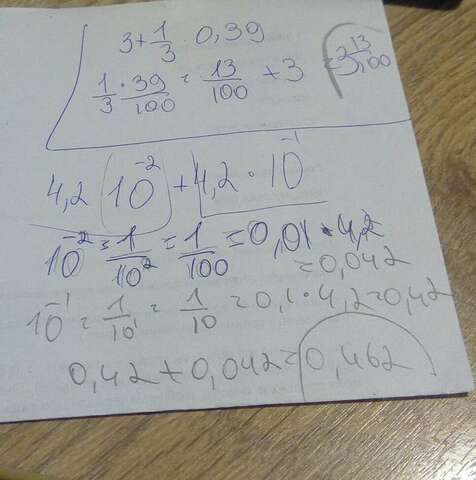 3 + 1/3 · 0,39
1/3 · 39/100 = 13/100 + 3 = 3 13/100
4,2 10^-2 + 4,2 · 10^-1
10^-2 = 1/10^2 = 1/100 = 0,01 · 4,2
= 0,042
10^-1 = 1/10^1 = 1/10 = 0,1 · 4,2 = 0,42
0,42 + 0,042 = 0,462